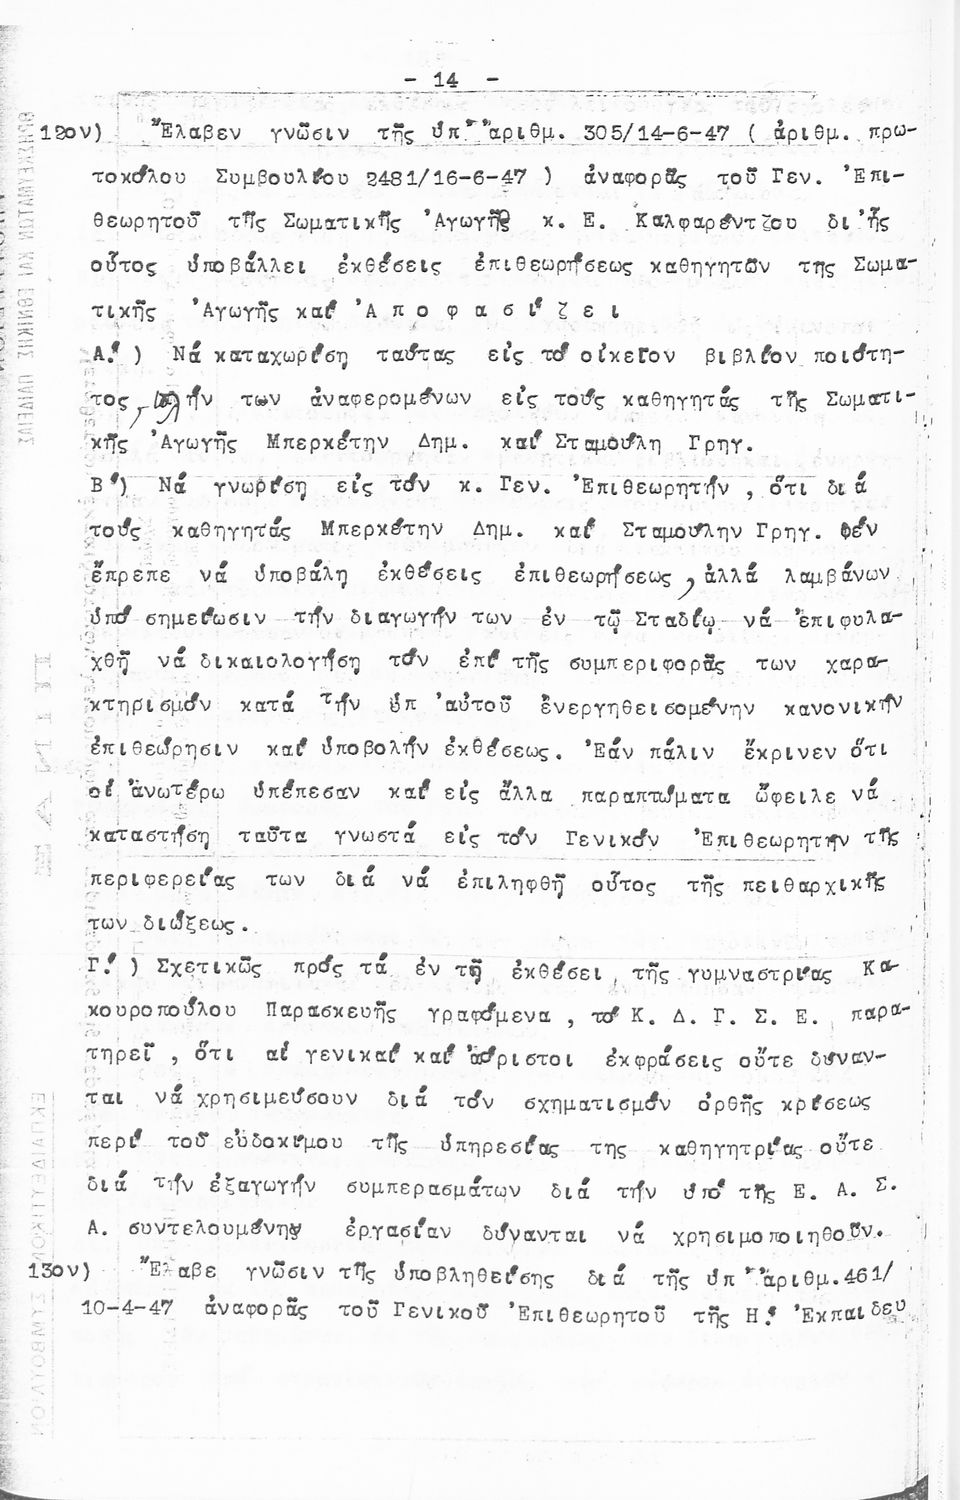 - 14 -
12ον) Ἔλαβεν γνῶσιν τῆς ὑπ' ἀριθμ. 305/14-6-47 ( ἀριθμ. πρω-
τοκόλου Συμβουλίου 2481/16-6-47 ) ἀναφορᾶς τοῦ Γεν. Ἐπι-
θεωρητοῦ τῆς Σωματικῆς Ἀγωγῆς κ. Ε. Καλφαρέντζου δι' ἧς
οὗτος ὑποβάλλει ἐκθέσεις ἐπιθεωρήσεως καθηγητῶν τῆς Σωμα-
τικῆς Ἀγωγῆς καί Ἀ π ο φ α σ ί ζ ε ι
Α.' ) Νά καταχωρίση ταύτας είς τό οἰκεῖον βιβλίον ποιότη-
τος, τήν των ἀναφερομένων είς τούς καθηγητάς τῆς Σωματι-
κῆς Ἀγωγῆς Μπερκέτην Δημ. καί Σταμούλη Γρηγ.
Β') Νά γνωρίση είς τόν κ. Γεν. Ἐπιθεωρητήν , ὅτι διά
τούς καθηγητάς Μπερκέτην Δημ. καί Σταμούλην Γρηγ. δέν
ἔπρεπε νά ὑποβάλη ἐκθέσεις ἐπιθεωρήσεως, ἀλλά λαμβάνων
ὑπό σημείωσιν τήν διαγωγήν των ἐν τῷ Σταδίῳ νά ἐπιφυλα-
χθῇ νά δικαιολογήση τόν ἐπί τῆς συμπεριφορᾶς των χαρα-
κτηρισμόν κατά τήν ὑπ' αὐτοῦ ἐνεργηθεισομένην κανονικήν
ἐπιθεώρησιν καί ὑποβολήν ἐκθέσεως. Ἐάν πάλιν ἔκρινεν ὅτι
οἱ ἀνωτέρω ὑπέπεσαν καί είς ἄλλα παραπτώματα ὤφειλε νά
καταστήση ταῦτα γνωστά είς τόν Γενικόν Ἐπιθεωρητήν τῆς
περιφερείας των διά νά ἐπιληφθῇ οὗτος τῆς πειθαρχικῆς
των διώξεως.
Γ.' ) Σχετικῶς πρός τά ἐν τῇ ἐκθέσει τῆς γυμναστρίας Κα-
κουροπούλου Παρασκευῆς γραφόμενα , τό Κ. Δ. Γ. Σ. Ε. παρα-
τηρεῖ , ὅτι αἱ γενικαί καί ἀόριστοι ἐκφράσεις οὔτε δύναν-
ται νά χρησιμεύσουν διά τόν σχηματισμόν ὀρθῆς κρίσεως
περί τοῦ εὐδοκίμου τῆς ὑπηρεσίας της καθηγητρίας οὔτε
διά τήν ἐξαγωγήν συμπερασμάτων διά τήν ὑπό τῆς Ε. Α. Σ.
Α. συντελουμένην ἐργασίαν δύνανται νά χρησιμοποιηθοῦν.
13ον) Ἔλαβε γνῶσιν τῆς ὑποβληθείσης διά τῆς ὑπ' ἀριθμ.461/
10-4-47 ἀναφορᾶς τοῦ Γενικοῦ Ἐπιθεωρητοῦ τῆς Η.' Ἐκπαιδευ